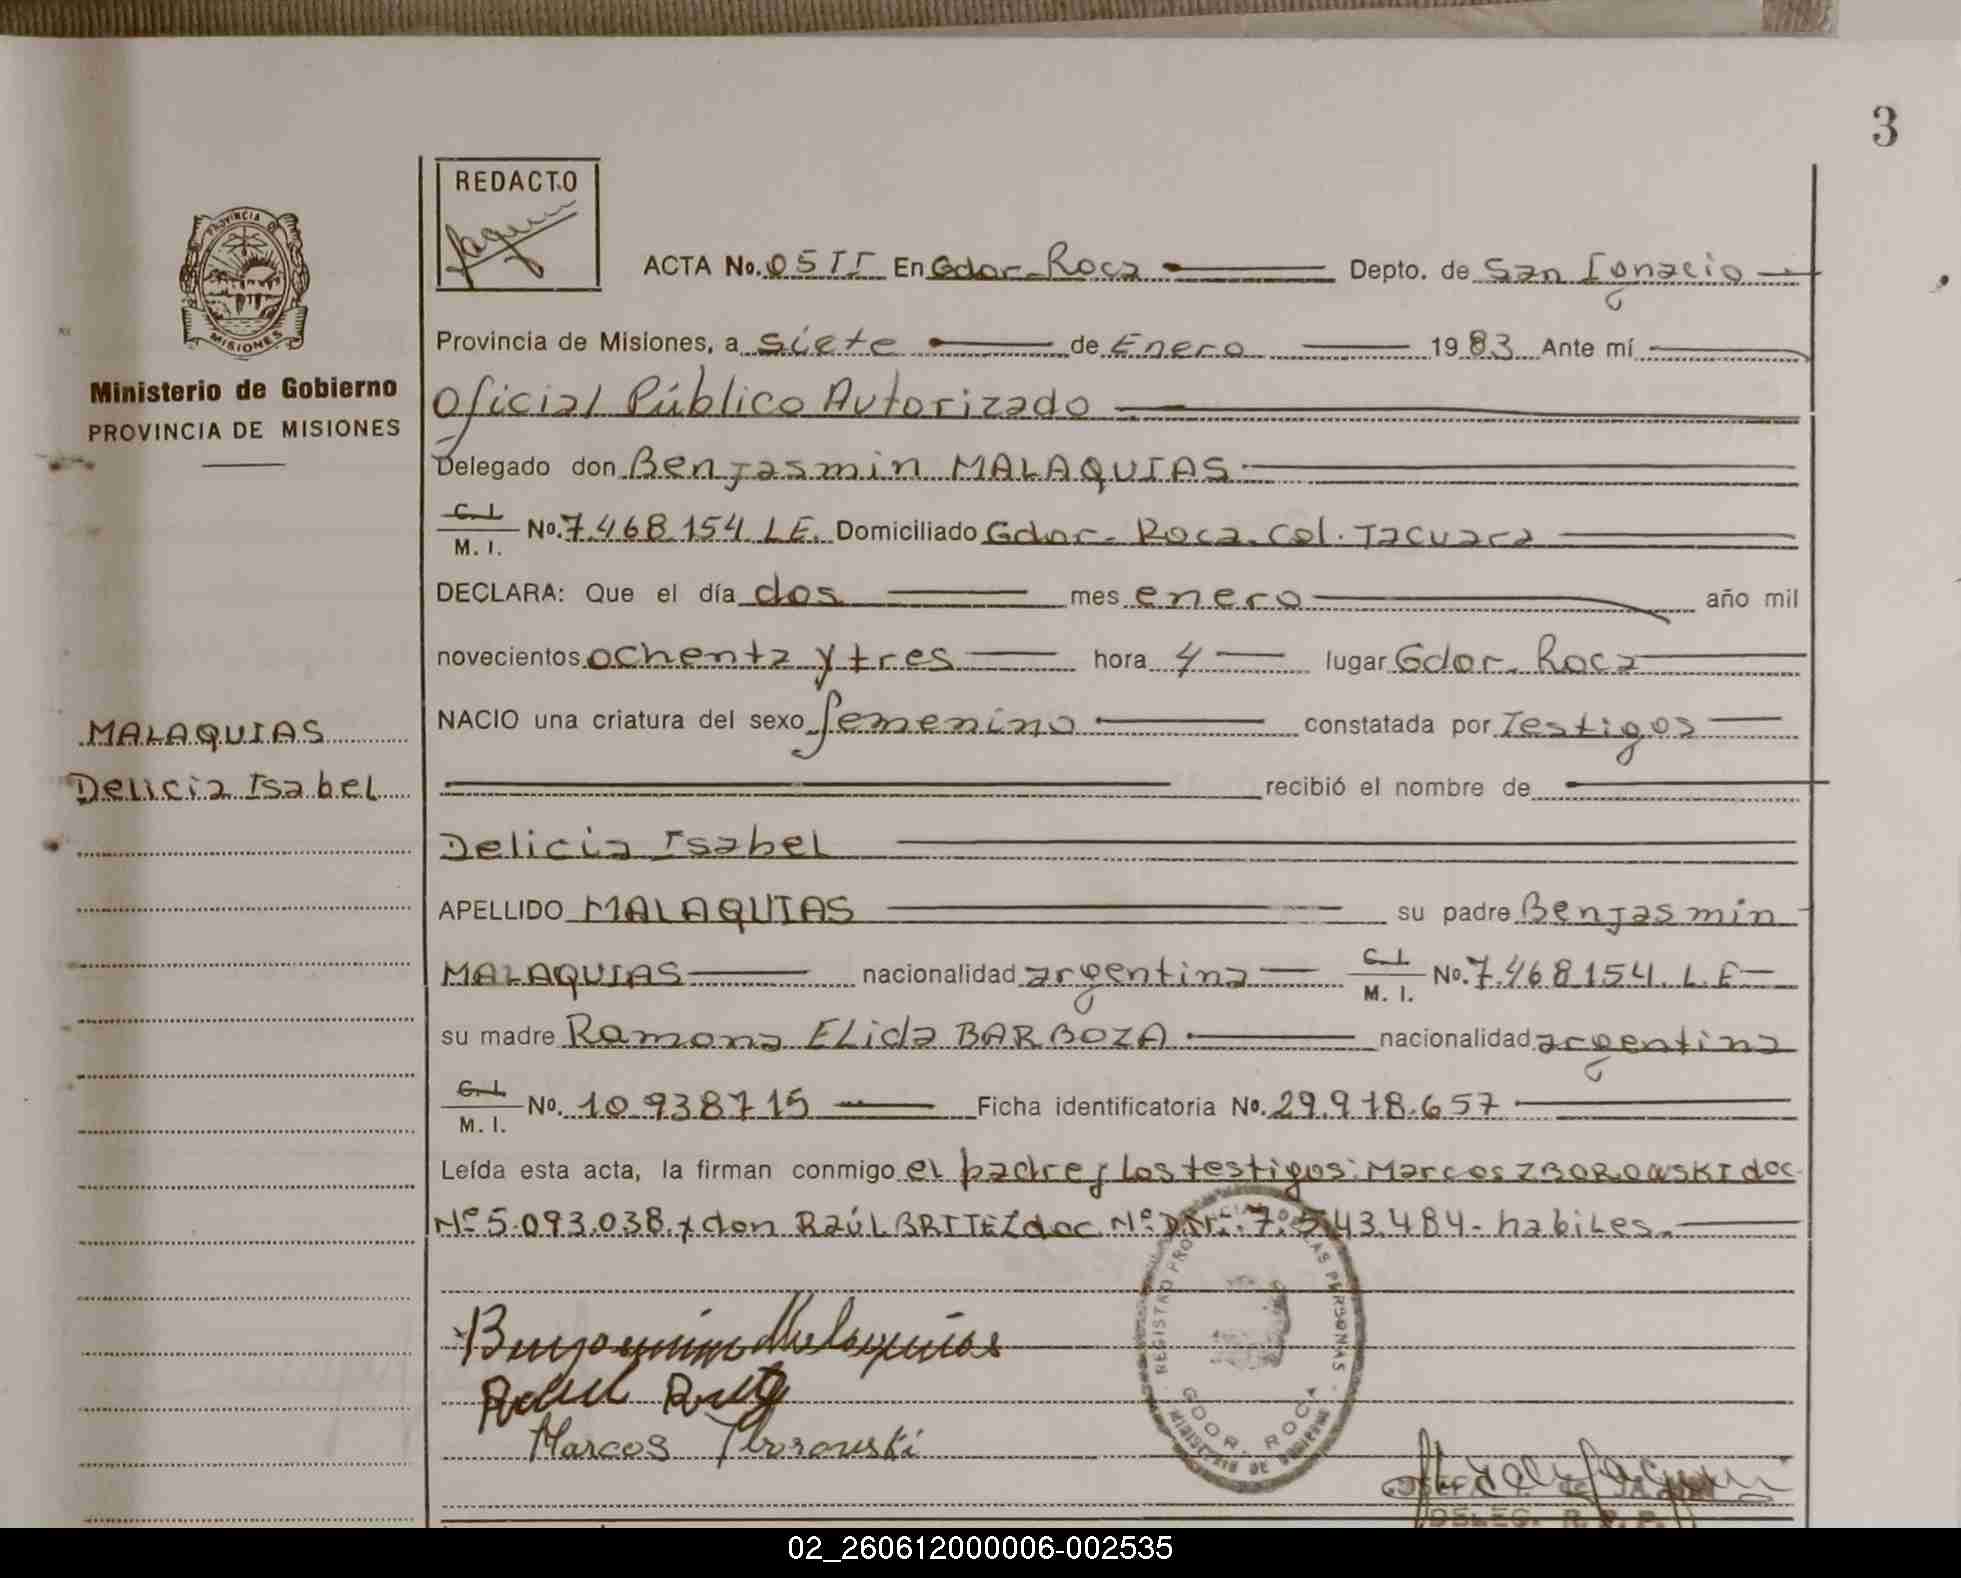 3
REDACTO
ACTA No. 05 II En Gdor. Roca Depto. de San Ignacio
PROVINCIA DE
MISIONES
Provincia de Misiones, a siete de Enero 1983 Ante mí
Ministerio de Gobierno
PROVINCIA DE MISIONES
Oficial Público Autorizado
Delegado don Benjasmin MALAQUIAS
C.I. M. I. No. 7.468.154 L.E. Domiciliado Gdor. Roca. Col. Tacuara
DECLARA: Que el día dos mes enero año mil
novecientos ochenta y tres hora 4 lugar Gdor. Roca
NACIO una criatura del sexo femenino constatada por Testigos
MALAQUIAS
Delicia Isabel
recibió el nombre de
Delicia Isabel
APELLIDO MALAQUIAS su padre Benjasmin
MALAQUIAS nacionalidad argentina C.I. M. I. No. 7.468.154. L.E
su madre Ramona ELida BARBOZA nacionalidad argentina
C.I. M. I. No. 10.938715 Ficha identificatoria No. 29.918.657
Leída esta acta, la firman conmigo el padre y los testigos: Marcos ZBOROWSKI doc.
Nº 5.093.038. y don RAÚL BRITEZ doc. Nº D.N.I. 7.543.484- habiles.
Benjasmin Malaquias
Marcos Zborowski
REGISTRO PROVINCIAL DE LAS PERSONAS
GDOR. ROCA
MINISTERIO DE GOBIERNO
DELEG. R. P. P.
02_260612000006-002535